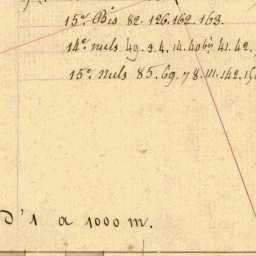 15º. Bis 82. 126. 162. 163.
14º. nuls 49. 3. 4. 14. 40 bis 41. 42.
15º. Nuls 85. 69. 78. 111. 142.
D' 1 a 1000 m.